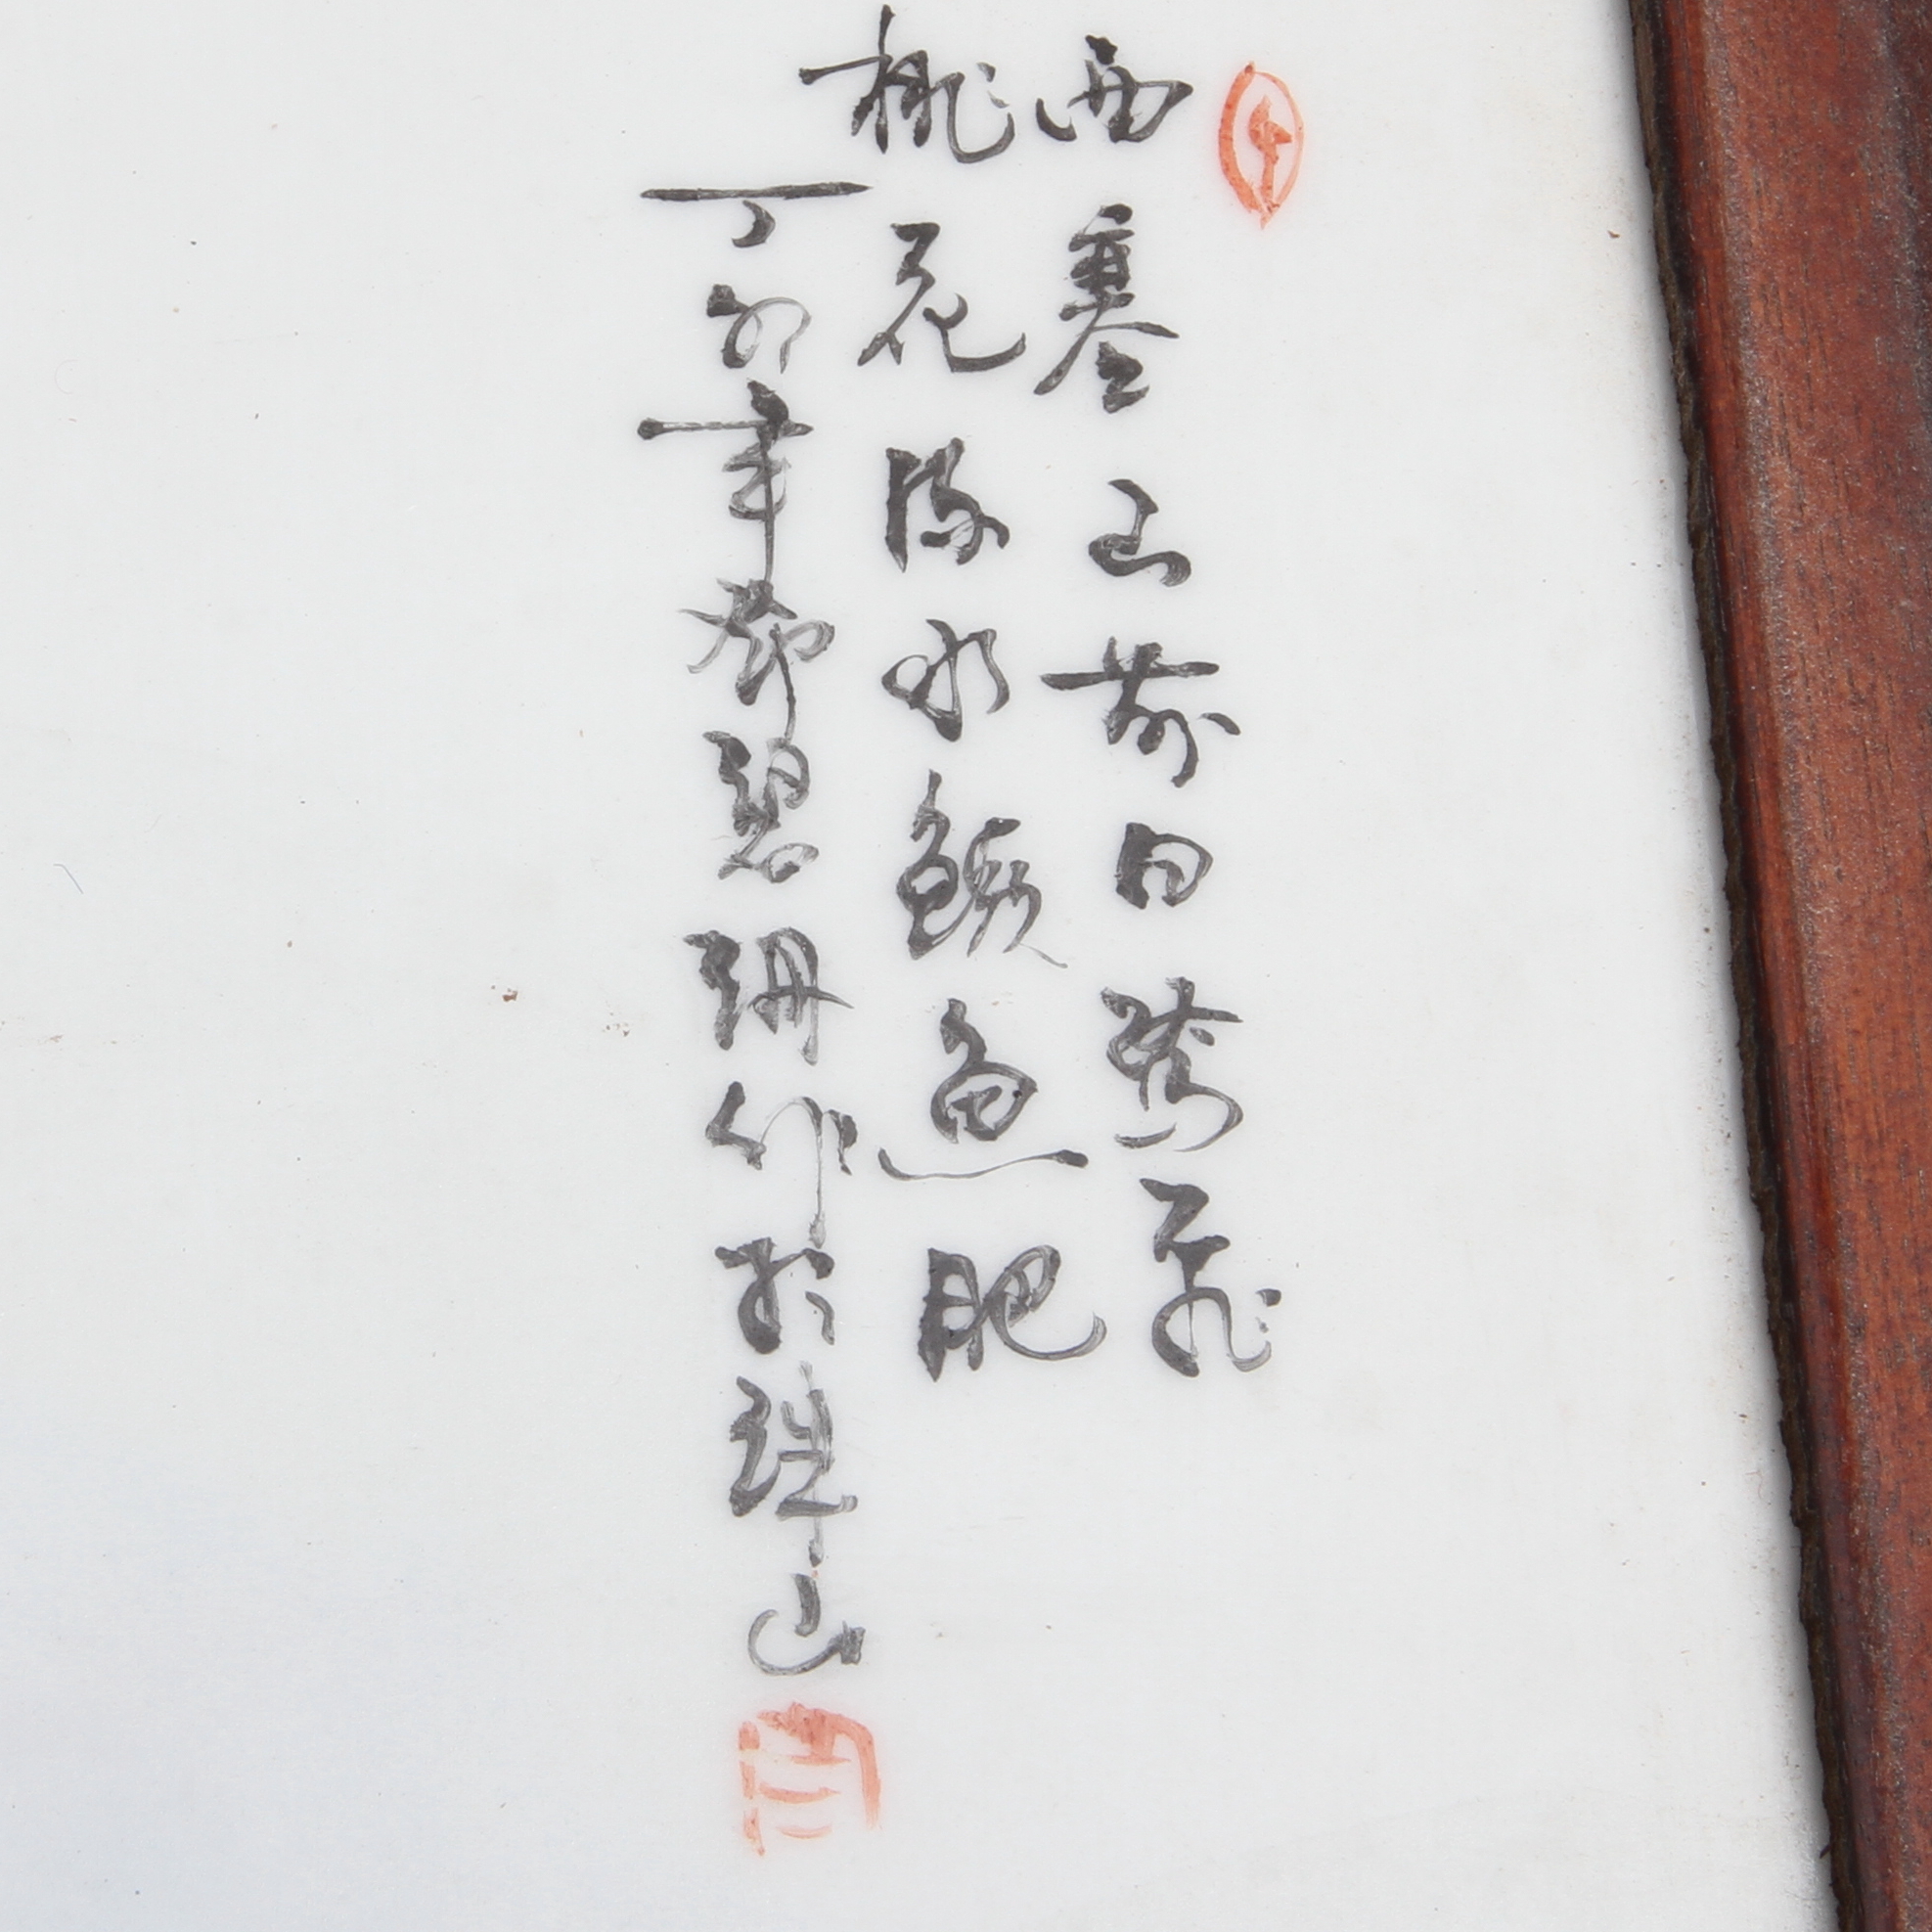 西塞山前白鹭飞
桃花流水鳜鱼肥
丁卯年邓碧珊作於珠山